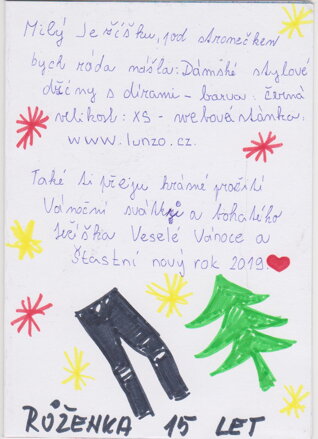 Milý Ježíšku, pod stromečkem
bych ráda našla: Dámské stylové
džíny s dírami - barva: černá
velikost: XS - webová stánka:
www.lunzo.cz.
Také ti přeju krásné prožití
Vánoční svátků a bohatého
Ježíška Veselé Vánoce a
Štastní nový rok 2019
RŮŽENKA 15 LET